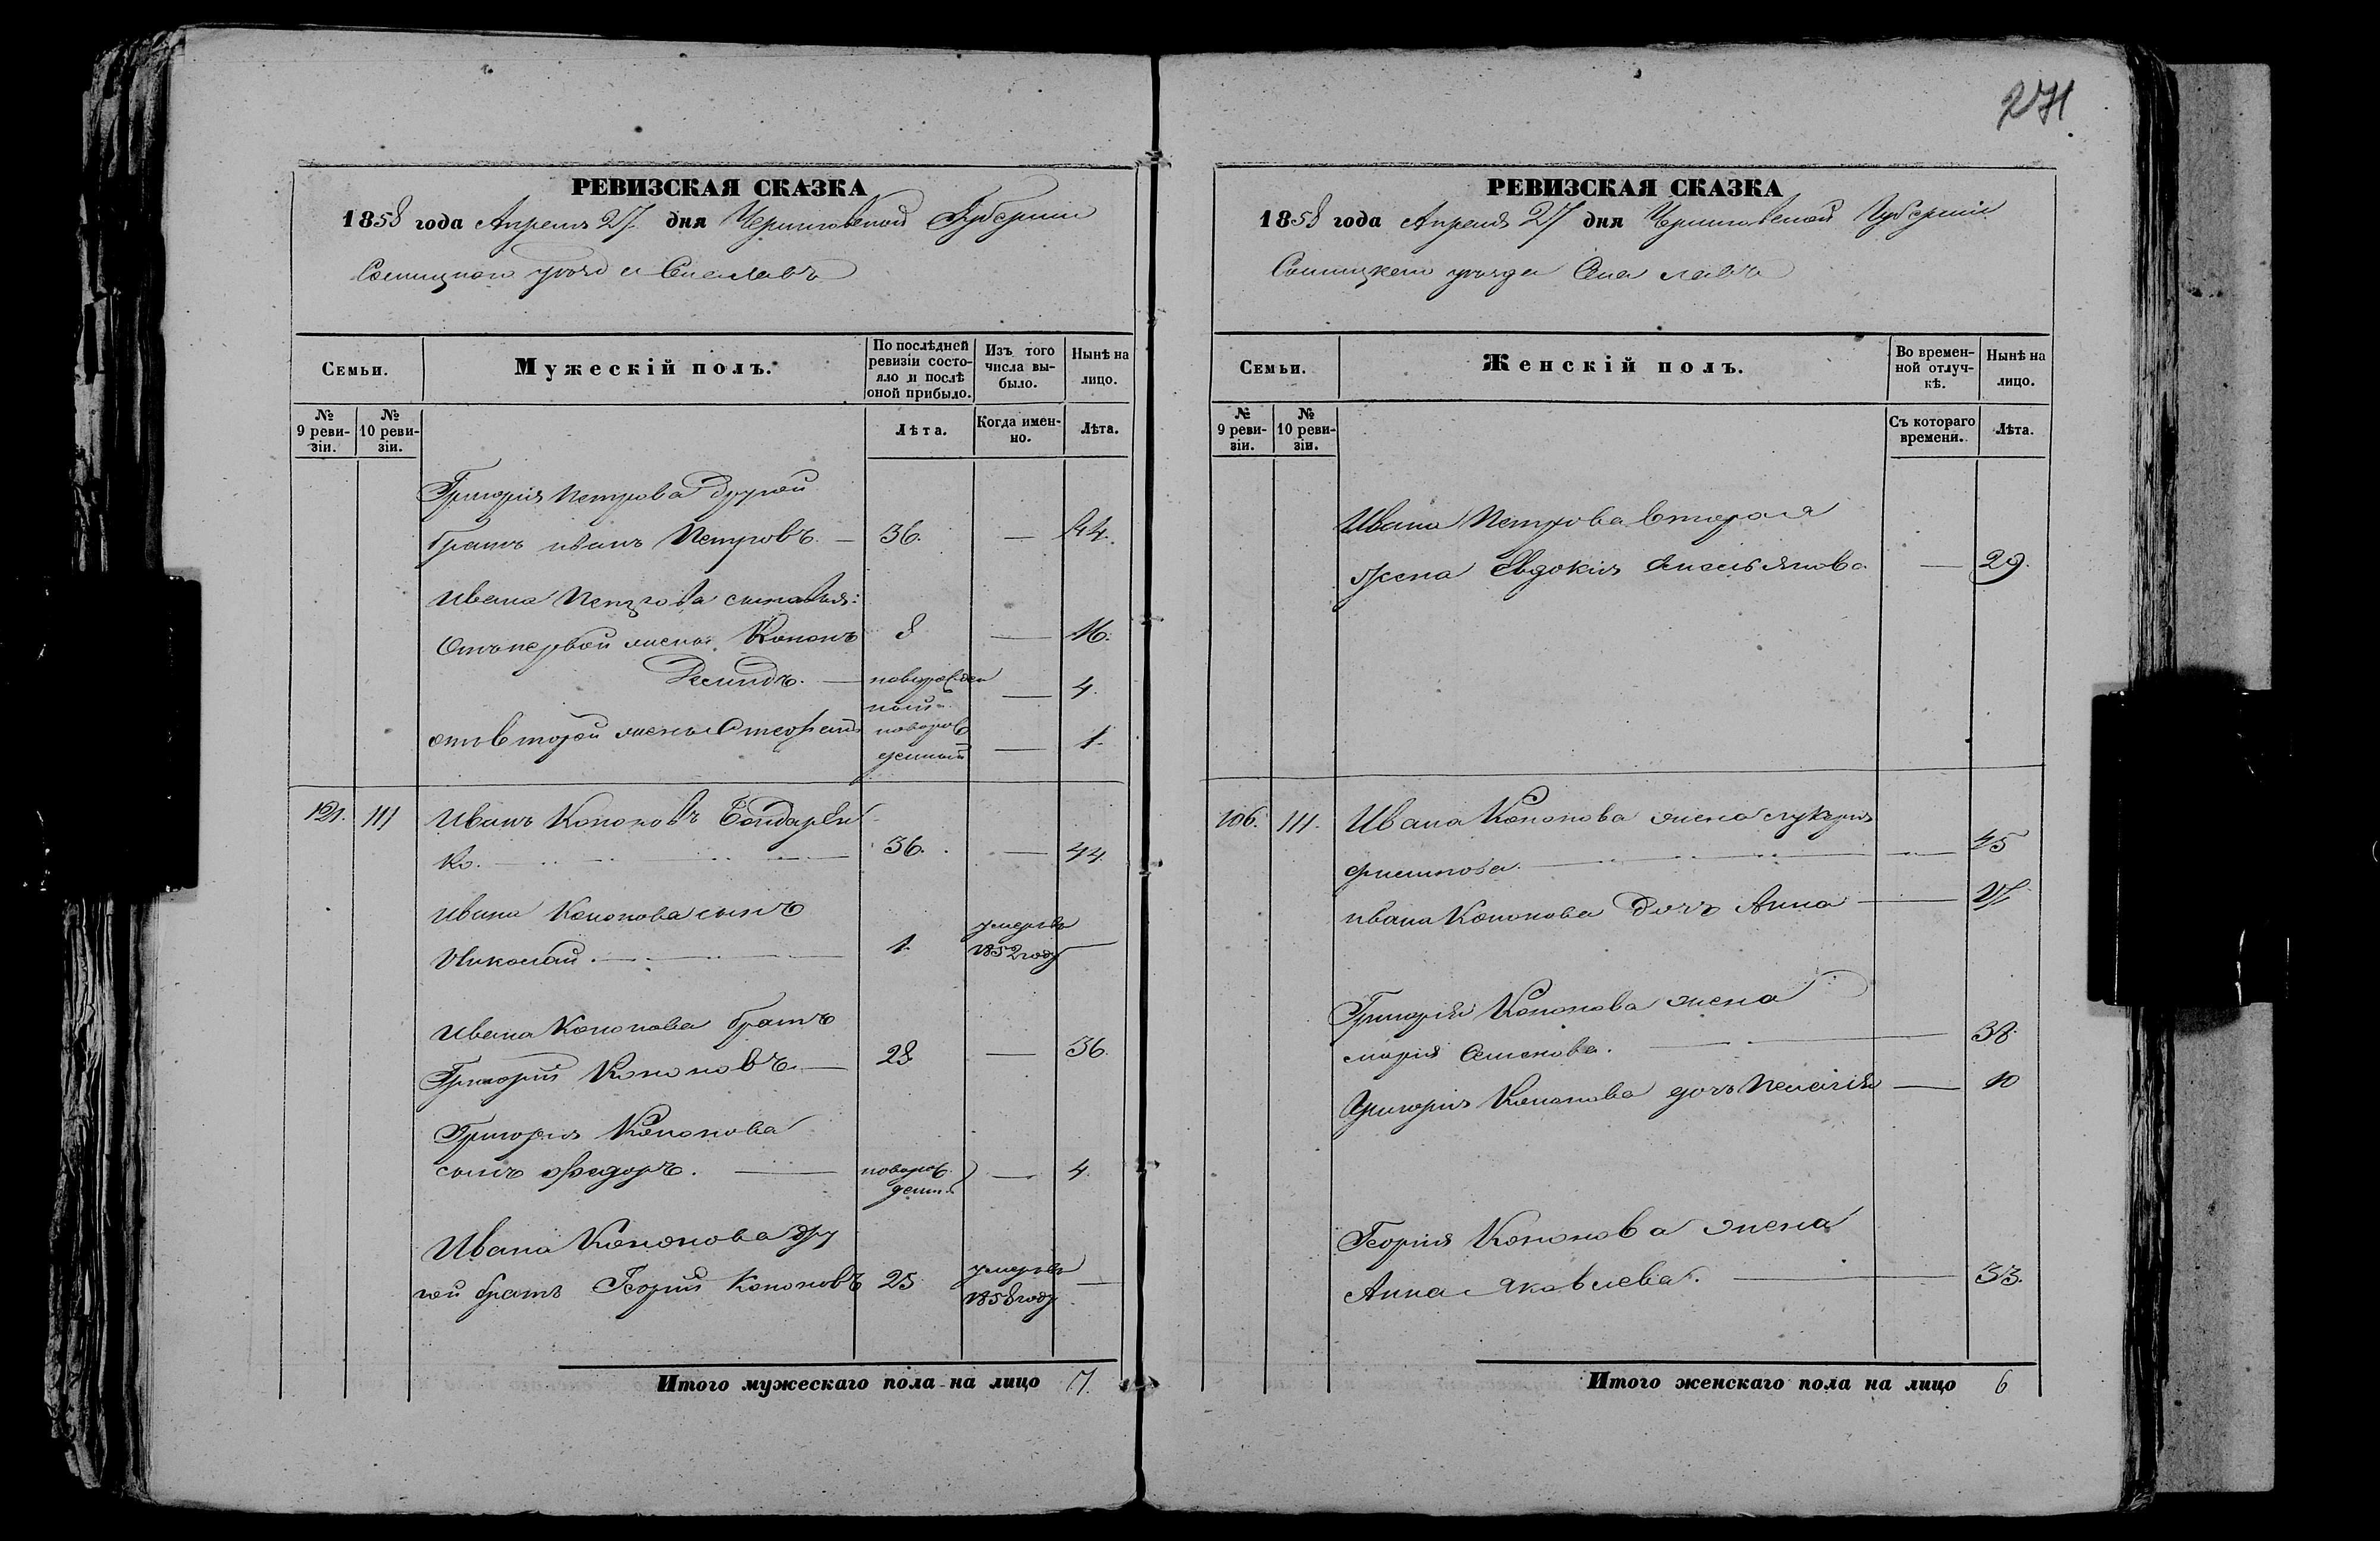 271
РЕВИЗСКАЯ СКАЗКА
1858 года Апреля 27 дня Черниговской Губернии
Сосницкого уезда Спаславъ
Семьи.
Мужескій полъ.
По послѣдней ревизіи состояло и послѣ оной прибыло.
Изъ того числа выбыло.
Нынѣ на лицо.
№ 9 ревизіи.
№ 10 ревизіи.
Лѣта.
Когда именно.
Лѣта.
Григорія Петрова другой
братъ иванъ Петровъ. — 36. — 44.
Ивана Петрова сыновья:
Отъ первой жены Кононъ 8 — 16.
— новорожден
ный — 4.
отъ второй жены новорож
денный — 1.
121. 111 Иванъ Кононовъ Бондарен
ко. 36. — 44.
Ивана Кононова сынъ
Николай. 1. умеръ въ
1852 году
Ивана Кононова братъ
Григорій Кононовъ. — 28 — 36.
Григорія Кононова
сынъ Федоръ. — новорож
денный — 4.
Ивана Кононова дру
гой братъ Георгій Кононовъ 25 умеръ въ
1858 году —
Итого мужескаго пола на лицо 7.
РЕВИЗСКАЯ СКАЗКА
1858 года Апреля 27 дня Черниговской Губерніи
Сосницкаго уезда Спаславъ
Семьи.
Женскій полъ.
Во временной отлучкѣ.
Нынѣ на лицо.
№ 9 ревизіи.
№ 10 ревизіи.
Съ котораго времени.
Лѣта.
Ивана Петрова вторая
жена Евдокія Емельянова — 29.
106. 111. Ивана Кононова жена Лукерія
45
ивана Кононова дочь Анна — 17
Григорія Кононова жена
марія Семенова. — 38.
Григорія Кононова дочь Пелагія — 10
Георгія Кононова жена
Анна Яковлева. — 33.
Итого женскаго пола на лицо 6